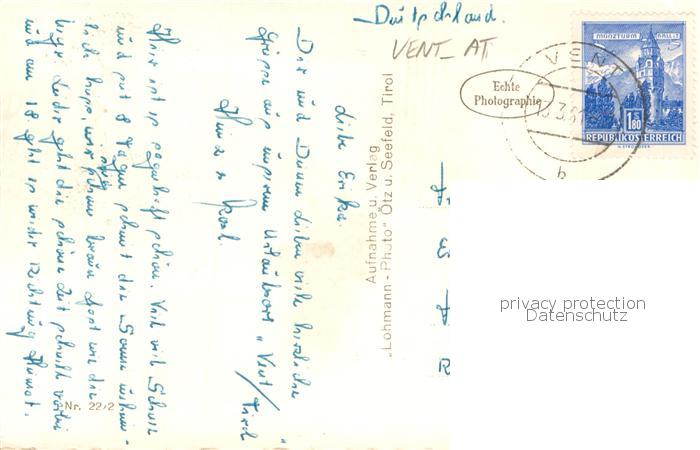 Deutschland.
VENT_AT
MÜNZTURM HALL i. T
1.80
REPUBLIK ÖSTERREICH
VENT
b
Echte
Photographie
Liebe Erika.
Dir und Deinen Lieben viele herzliche
Grüsse aus unserem Urlaubsort „Vent / Tirol"
Heinz u.
Hier ist es sagenhaft schön. Viel viel Schnee
und seit 8 Tagen scheint die Sonne
wir schon braun
Leider geht die schöne Zeit schnell vorbei
und am 18 geht es wieder Richtung Heimat.
Aufnahme u. Verlag
„Lohmann - Photo" Ötz u. Seefeld, Tirol
Nr. 22/2
privacy protection
Datenschutz